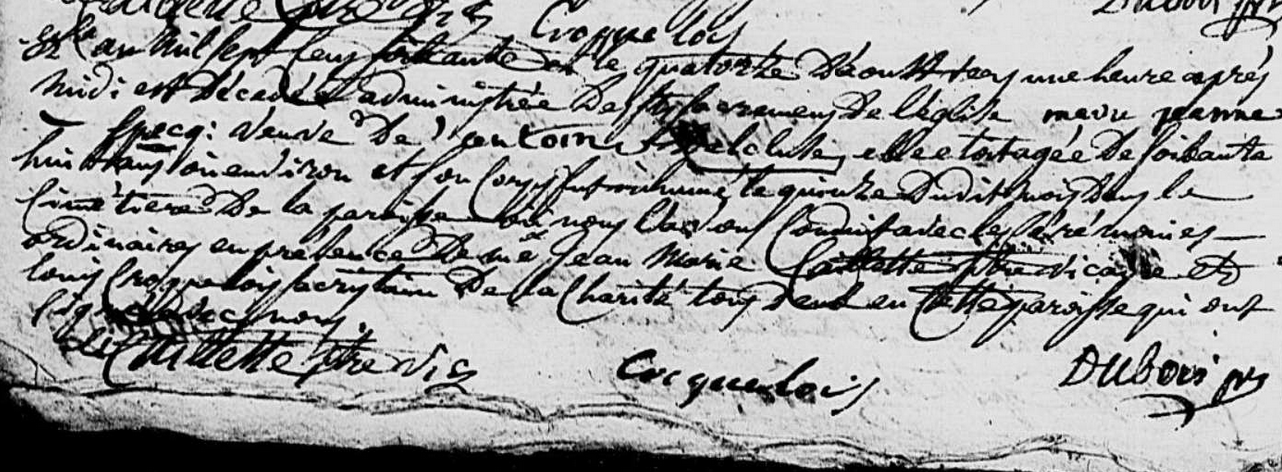 Croquelois Dubois
L'an mil sept cens soixante et le quatorze d'aoust vers une heure après
midi est décédée administrée des sts sacremens de l'église marie jeanne
specq: veuve de antoine elle etoit agée de soixante
huit ans ou environ et son corps fut inhumé le quinze dudit mois dans le
cimetiere de la paroisse où nous l'avons conduit avec les cérémonies
ordinaires en présence de me Jean Marie Caillette ptre vicaire et
louis Croquelois sacristain de la charité tous deux en cette paroisse qui ont
signé avec nous.
Caillette ptre vic Crocquelois Dubois